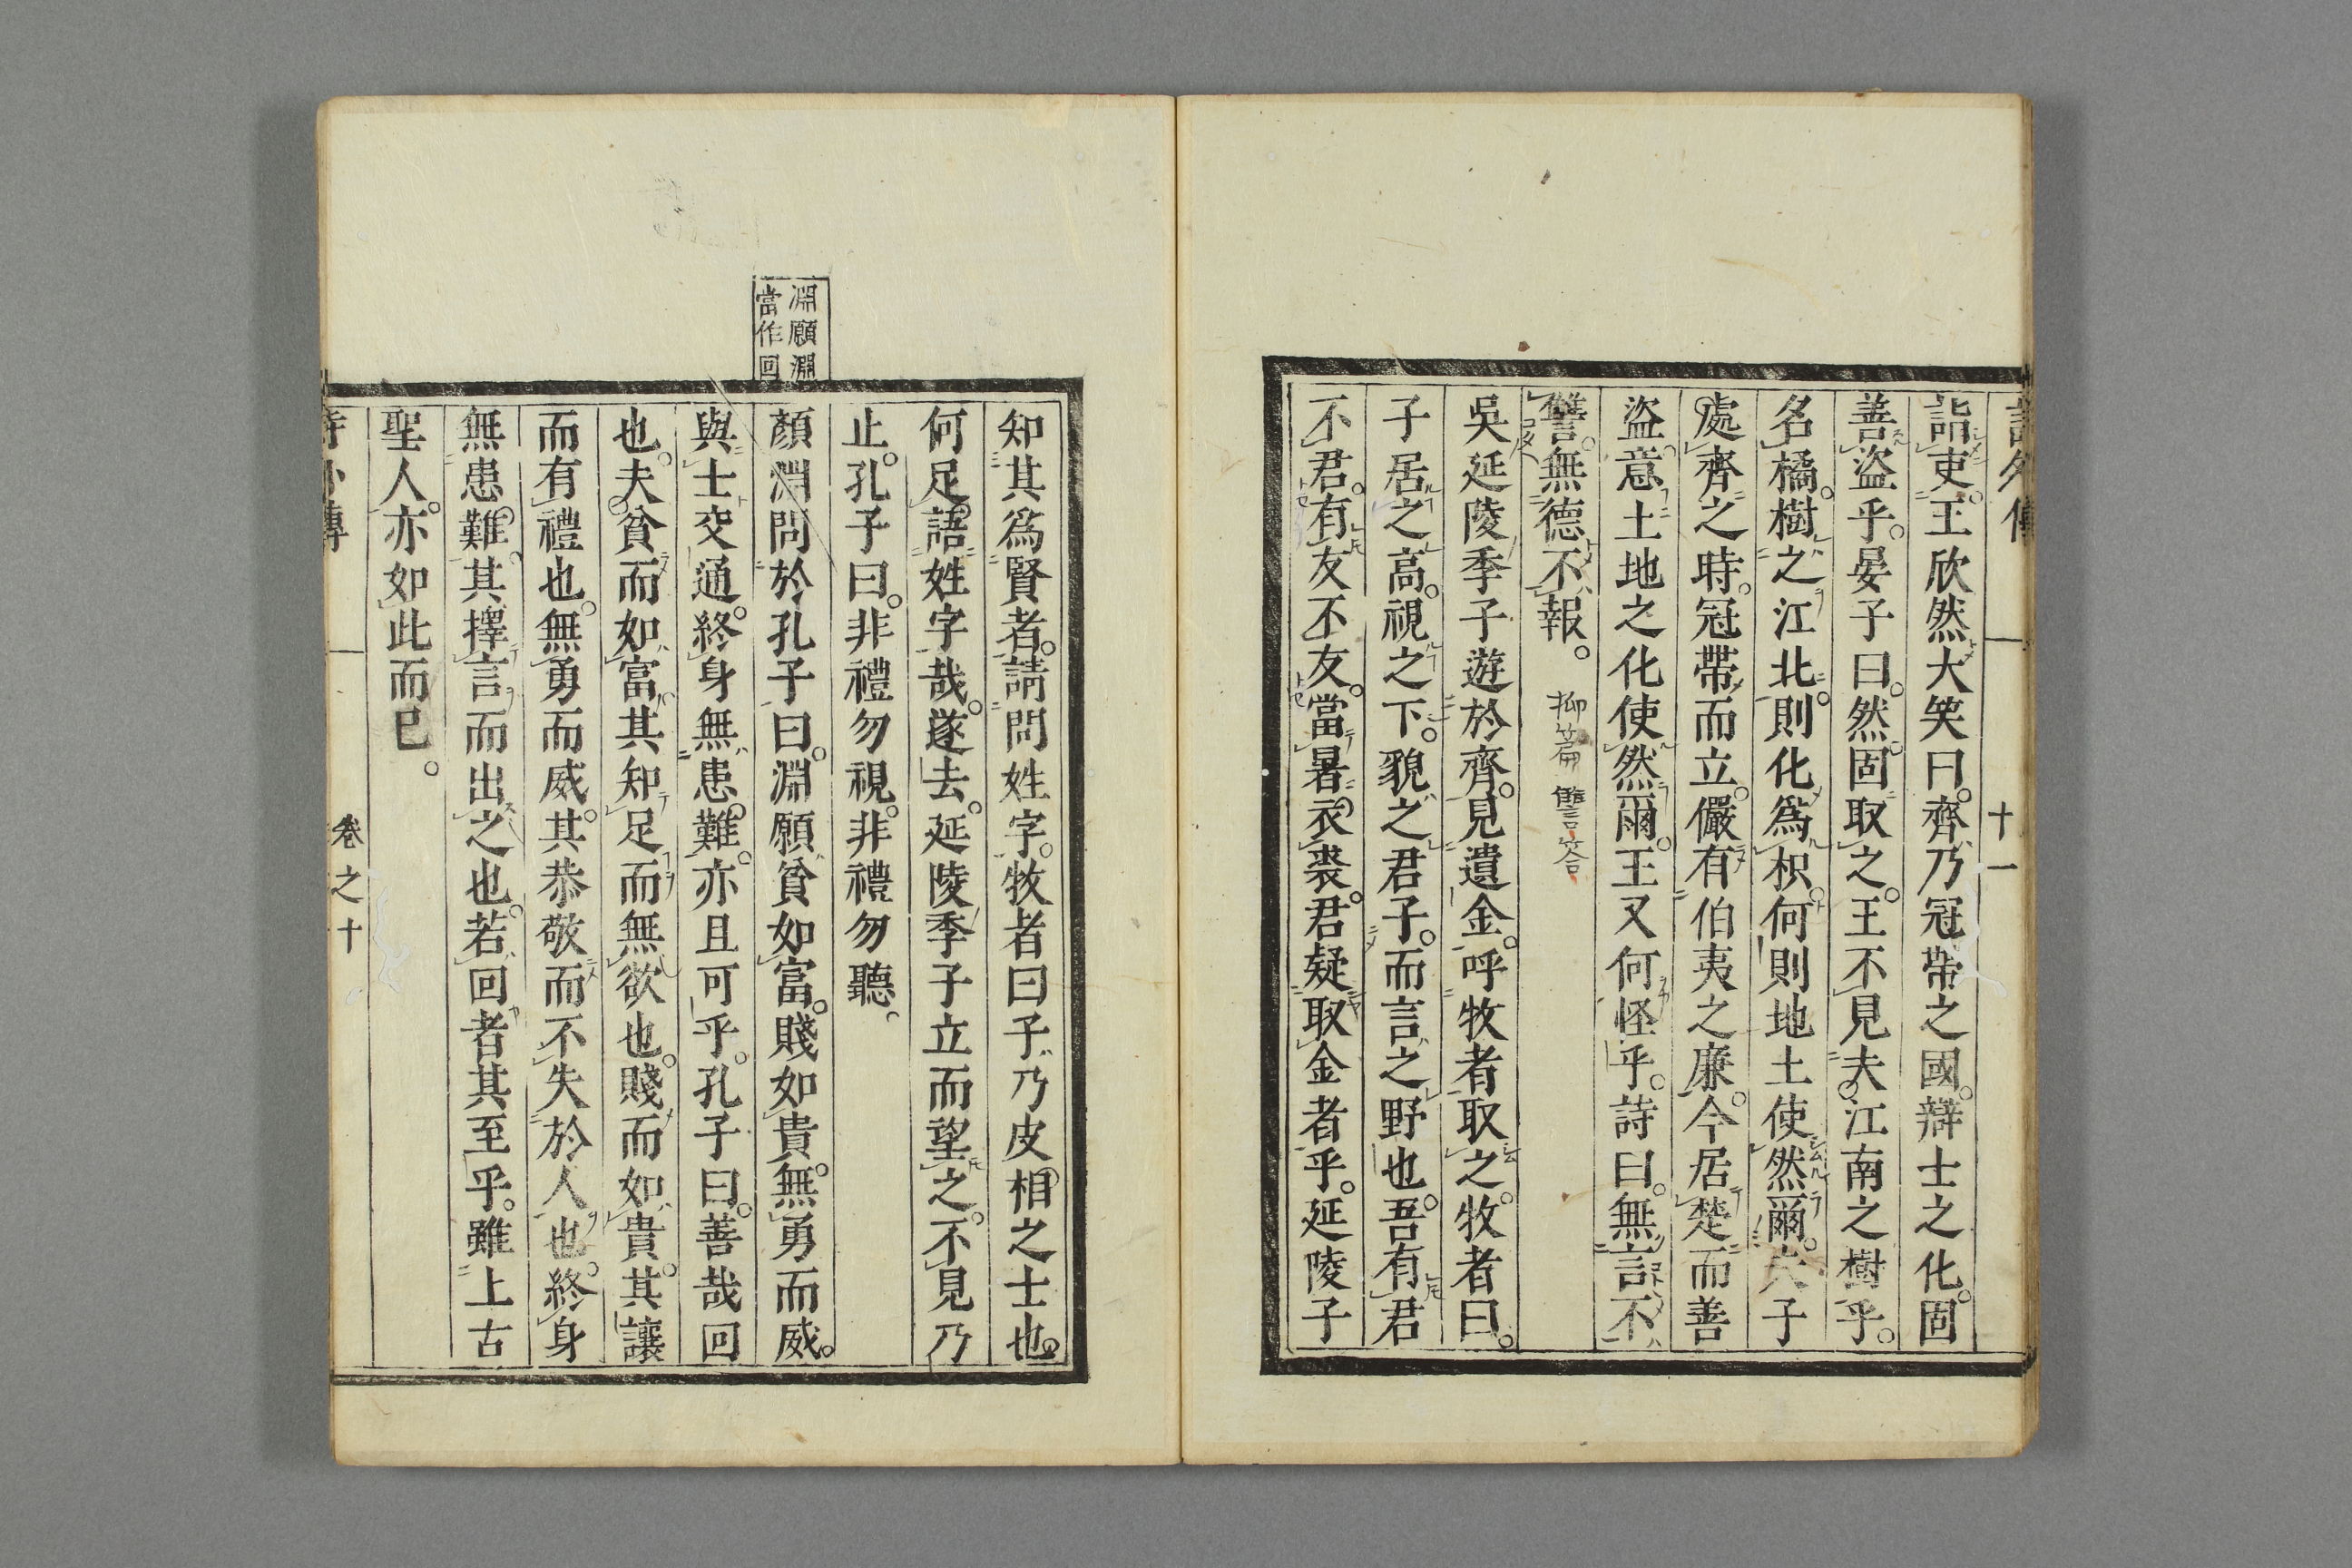 十一
詣吏。王欣然大笑曰。齊乃冠帶之國。辯士之化。固
善盜乎。晏子曰。然。固取之。王不見夫。江南之樹乎。
名橘。樹之江北。則化爲枳。何則地土使然爾。夫子
處齊之時。冠帶而立。儼有伯夷之廉。今居楚而善
盜。意土地之化使然爾。王又何怪乎。詩曰。無言不
讐。無德不報。 抑篇 讐答
吳延陵季子遊於齊。見遺金。呼牧者取之。牧者曰。
子居之高。視之下。貌之君子。而言之野也。吾有君
不君。有友不友。當暑衣裘。君疑取金者乎。延陵子
知其爲賢者。請問姓字。牧者曰子乃皮相之士也。
何足語姓字哉。遂去。延陵季子立而望之。不見乃
止。孔子曰。非禮勿視。非禮勿聽。
淵願淵
當作回
顏淵問於孔子曰。淵願貧如富。賤如貴。無勇而威。
與士交通。終身無患難。亦且可乎。孔子曰。善哉回
也。夫貧而如富。其知足而無欲也。賤而如貴。其讓
而有禮也。無勇而威。其恭敬而不失於人也。終身
無患難。其擇言而出之也。若回者其至乎。雖上古
聖人。亦如此而已。
卷之十